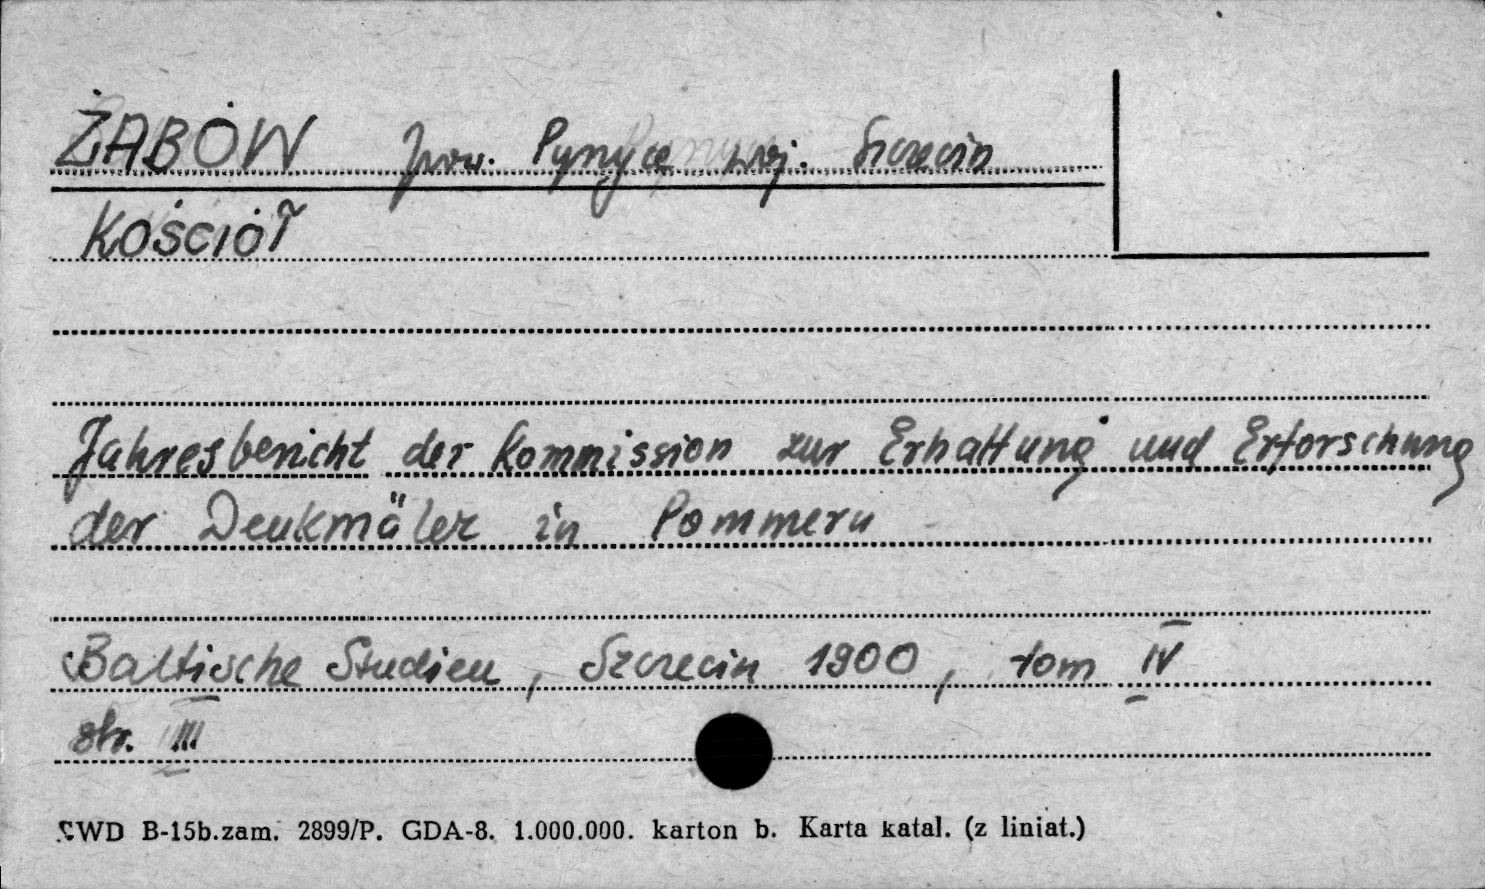 ŻABÓW pow. Pyrzyce woj. Szczecin
KOŚCIÓŁ
Jahresbericht der Kommission zur Erhaltung und Erforschung
der Denkmäler in Pommern
Baltische Studien, Szczecin 1900, tom IV
str. III
CWD B-15b.zam. 2899/P. GDA-8. 1.000.000. karton b. Karta katal. (z liniat.)